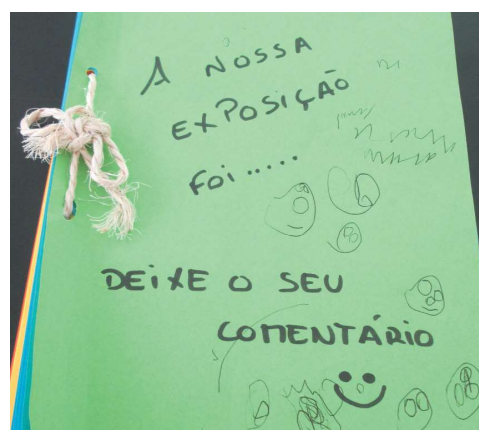 A NOSSA
EXPOSIÇÃO
FOi.....
DEiXE O SEU
COMENTÁRiO